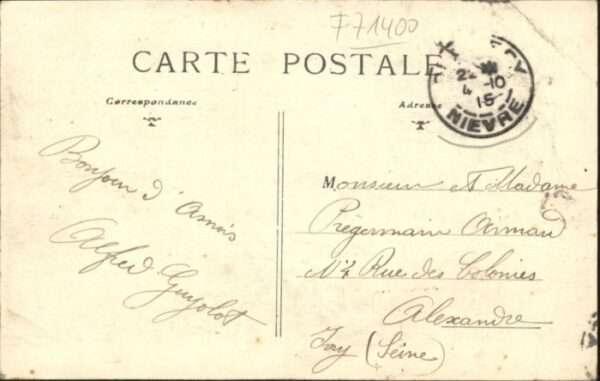 F71400
CARTE POSTALE
Correspondance
Adresse
22
4-10
15
NIEVRE
Bonjour d'Amis
Alfred Guyolot
Monsieur et Madame
Prégermain Armand
N° 7 Rue des Colonies
Alexandre
Ivry (Seine)